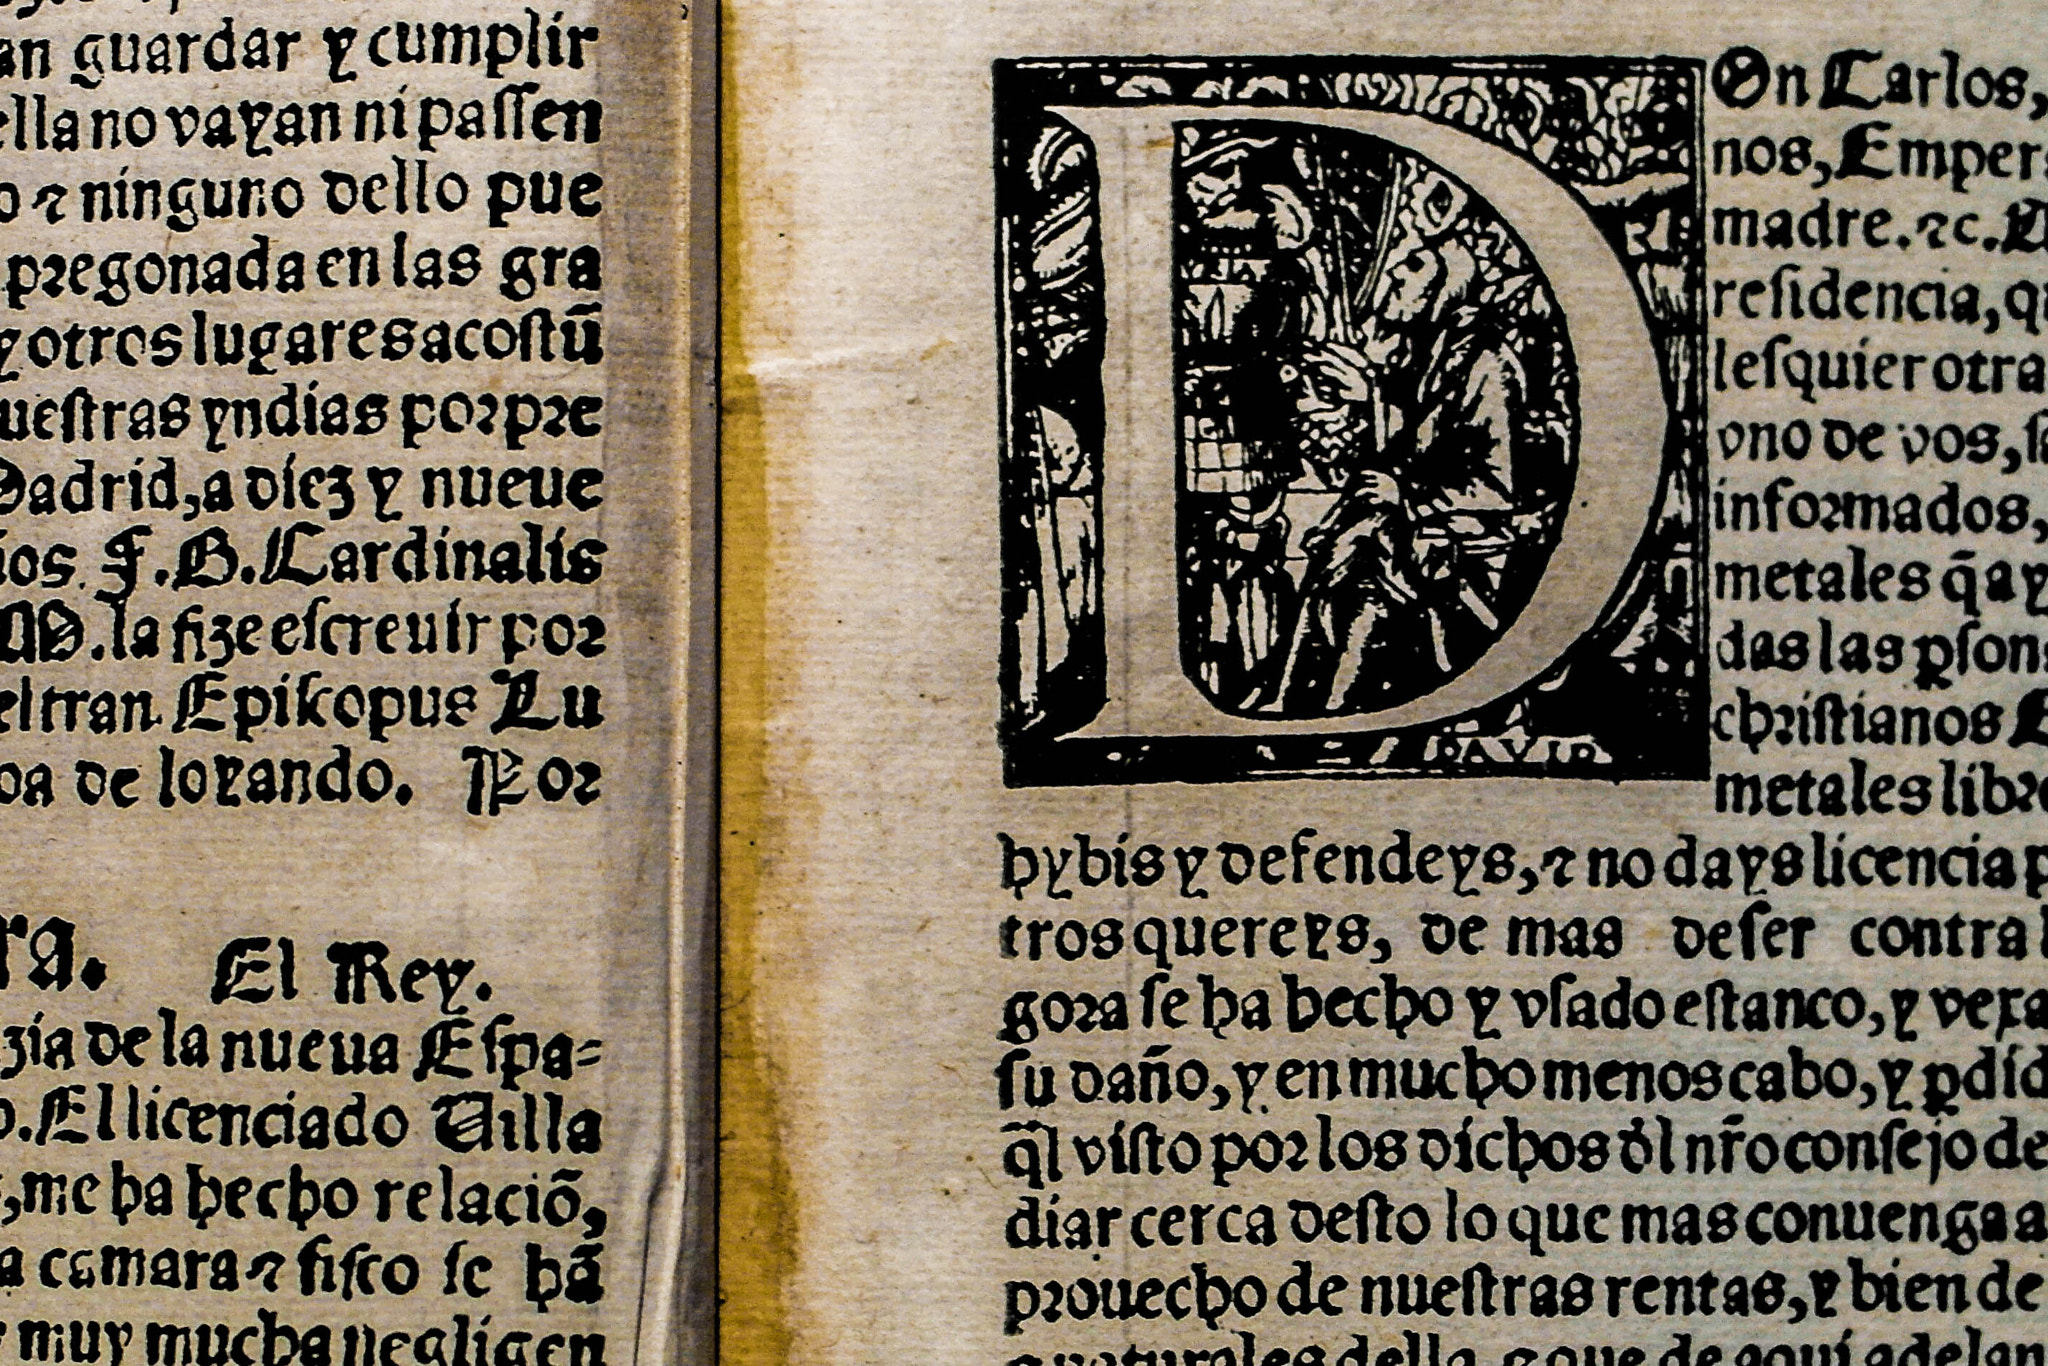 an guardar y cumplir
ella no vayan ni paſſen
o ⁊ ninguno dello pue
pregonada en las gra
y otros lugares acoſtũ
ueſtras yndias por pre
Madrid, a diez y nueue
ños. F. B. Cardinalis
M. la fize eſcreuir por
eltran Epiſcopus Lu
oa de loyando. Por
ra. El Rey.
zia de la nueua Eſpa=
o. El licenciado Uilla
, me ha hecho relaciõ,
a camara ⁊ fiſco ſe hã
muy mucha negligen
DOn Carlos,
nos, Empera
madre. ⁊c. A
reſidencia, qu
leſquier otra
vno de vos, ſa
informados,
metales q̃ ay
das las ꝑſon
chriſtianos E
metales libre
DAVID
hybis y defendeys, ⁊ no days licencia p
tros quereys, de mas deſer contra l
gora ſe ha hecho y vſado eſtanco, y vexa
ſu daño, y en mucho menos cabo, y ꝑdid
q̃l viſto por los dichos dl̃ nr̃o conſejo de
diar cerca deſto lo que mas conuenga a
prouecho de nueſtras rentas, y bien de
naturales della, ⁊ que de aqui adelan